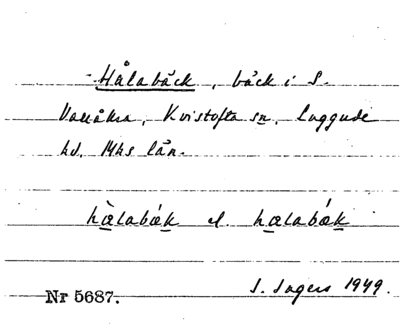 Hålabäck, bäck i S.
Vallåkra, Kvistofta sn, Luggude
hd, Mhs län.
hæ̀labǽk el. hælabǽk
Nr 5687. S. Ingers 1949.